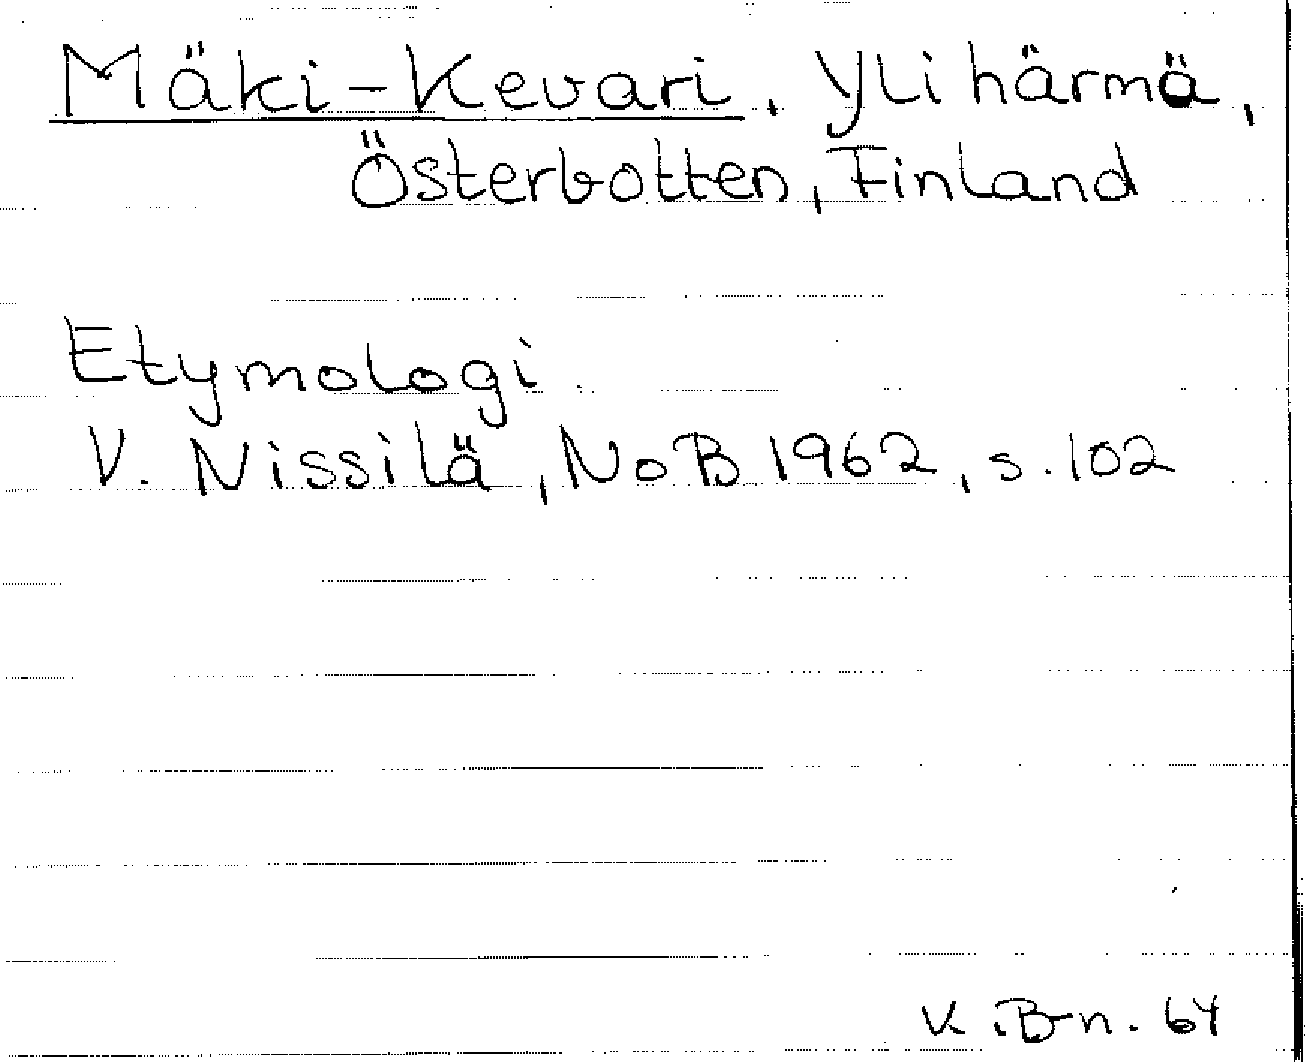 Mäki-Kevari, Ylihärmä,
Österbotten, Finland
Etymologi
V. Nissilä, NoB 1962, s. 102
K.B-n. 64